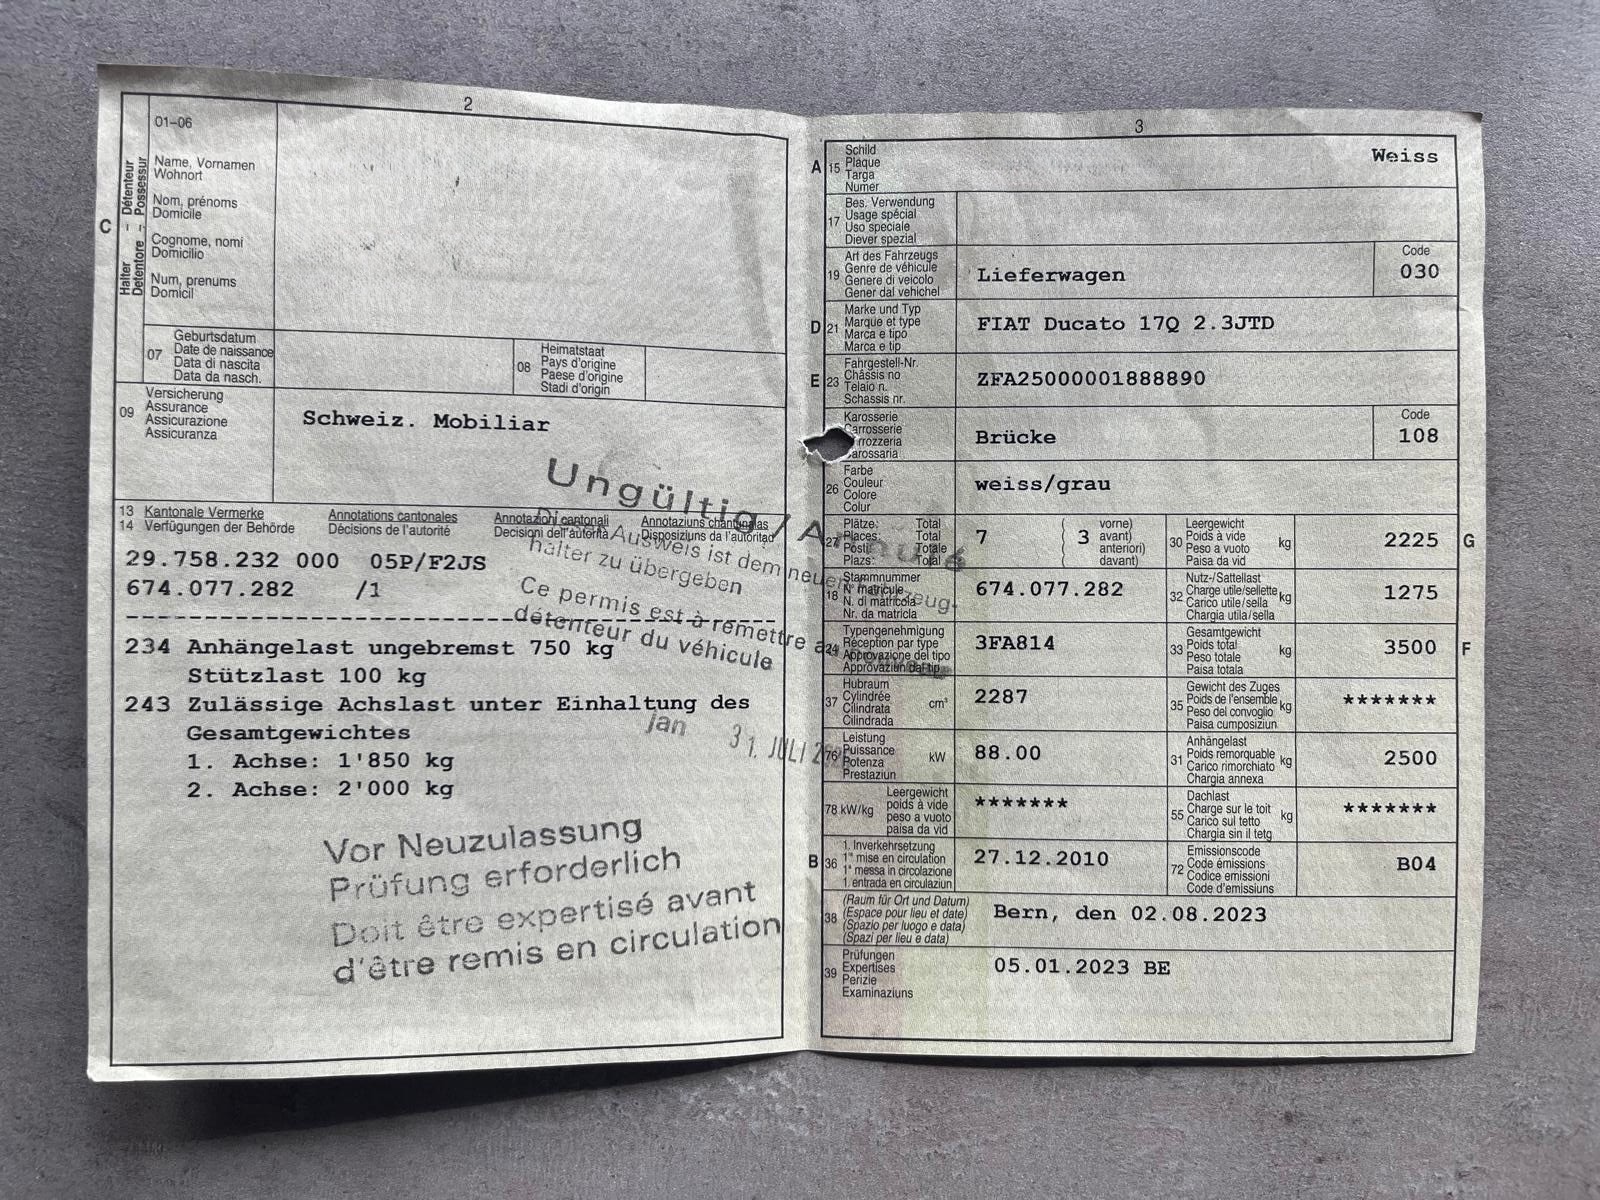 2
01-06
Halter - Détenteur
Detentore - Possessur
C
Name, Vornamen
Wohnort
Nom, prénoms
Domicile
Cognome, nomi
Domicilio
Num, prenums
Domicil
07
Geburtsdatum
Date de naissance
Data di nascita
Data da nasch.
08
Heimatstaat
Pays d'origine
Paese d'origine
Stadi d'origin
09
Versicherung
Assurance
Assicurazione
Assicuranza
Schweiz. Mobiliar
13 Kantonale Vermerke Annotations cantonales Annotazioni cantonali Annotaziuns chantunalas
14 Verfügungen der Behörde Décisions de l'autorité Decisioni dell'autorità Disposiziuns da l'autoritad
Ungültig / Annulé
Dieser Ausweis ist dem neuen Fahrzeug-
halter zu übergeben
Ce permis est à remettre au
détenteur du véhicule
29.758.232 000 05P/F2JS
674.077.282 /1
234 Anhängelast ungebremst 750 kg
Stützlast 100 kg
243 Zulässige Achslast unter Einhaltung des
Gesamtgewichtes
1. Achse: 1'850 kg
2. Achse: 2'000 kg
jan 31. JULI
Vor Neuzulassung
Prüfung erforderlich
Doit être expertisé avant
d'être remis en circulation
3
A 15
Schild
Plaque
Targa
Numer
Weiss
17
Bes. Verwendung
Usage spécial
Uso speciale
Diever spezial
19
Art des Fahrzeugs
Genre de véhicule
Genere di veicolo
Gener dal vehichel
Lieferwagen
Code
030
D 21
Marke und Typ
Marque et type
Marca e tipo
Marca e tip
FIAT Ducato 17Q 2.3JTD
E 23
Fahrgestell-Nr.
Châssis no
Telaio n.
Schassis nr.
ZFA25000001888890
Karosserie
Carrosserie
rrozzeria
arossaria
Brücke
Code
108
26
Farbe
Couleur
Colore
Colur
weiss/grau
27
Plätze: Total
Places: Total
Posti: Totale
Plazs: Total
7
( 3
vorne)
avant)
anteriori)
davant)
30
Leergewicht
Poids à vide
Peso a vuoto
Paisa da vid
kg
2225
G
18
Stammnummer
N° matricule
N. di matricola
Nr. da matricla
674.077.282
32
Nutz-/Sattellast
Charge utile/sellette
Carico utile/sella
Chargia utila/sella
kg
1275
24
Typengenehmigung
Réception par type
Approvazione del tipo
Approvaziun dal tip
3FA814
33
Gesamtgewicht
Poids total
Peso totale
Paisa totala
kg
3500
F
37
Hubraum
Cylindrée
Cilindrata
Cilindrada
cm³
2287
35
Gewicht des Zuges
Poids de l'ensemble
Peso del convoglio
Paisa cumposiziun
kg
*******
76
Leistung
Puissance
Potenza
Prestaziun
kW
88.00
31
Anhängelast
Poids remorquable
Carico rimorchiato
Chargia annexa
kg
2500
78 kW/kg
Leergewicht
poids à vide
peso a vuoto
paisa da vid
*******
55
Dachlast
Charge sur le toit
Carico sul tetto
Chargia sin il tetg
kg
*******
B 36
1. Inverkehrsetzung
1re mise en circulation
1a messa in circolazione
1. entrada en circulaziun
27.12.2010
72
Emissionscode
Code émissions
Codice emissioni
Code d'emissiuns
B04
38
(Raum für Ort und Datum)
(Espace pour lieu et date)
(Spazio per luogo e data)
(Spazi per lieu e data)
Bern, den 02.08.2023
39
Prüfungen
Expertises
Perizie
Examinaziuns
05.01.2023 BE